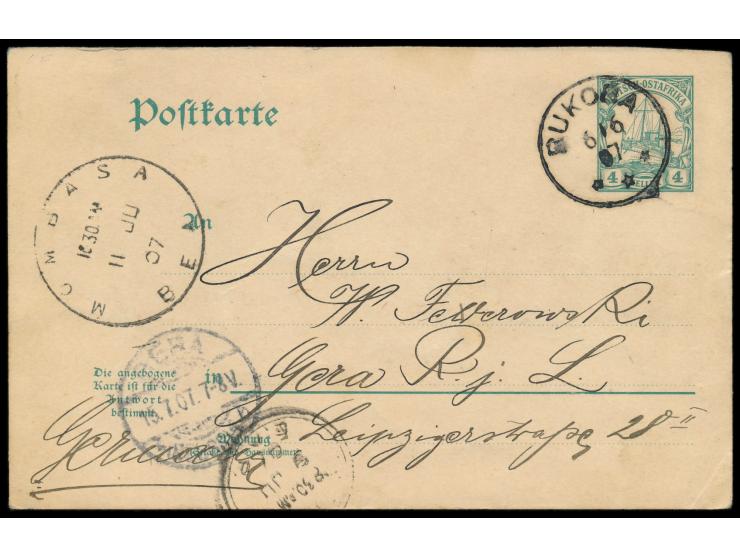 Postkarte
DEUTSCH-OSTAFRIKA
4 HELLER 4
BUKOBA
6/6
07
MOMBASA
10.30 AM
11 JU
07
An
Herrn
W. Feverowski
in Gera R. j. L.
Leipzigerstraße 28 II
Die angebogene
Karte ist für die
Antwort
bestimmt.
GERA
7-8V.
Wohnung
Germany
8 30 AM
9 JU